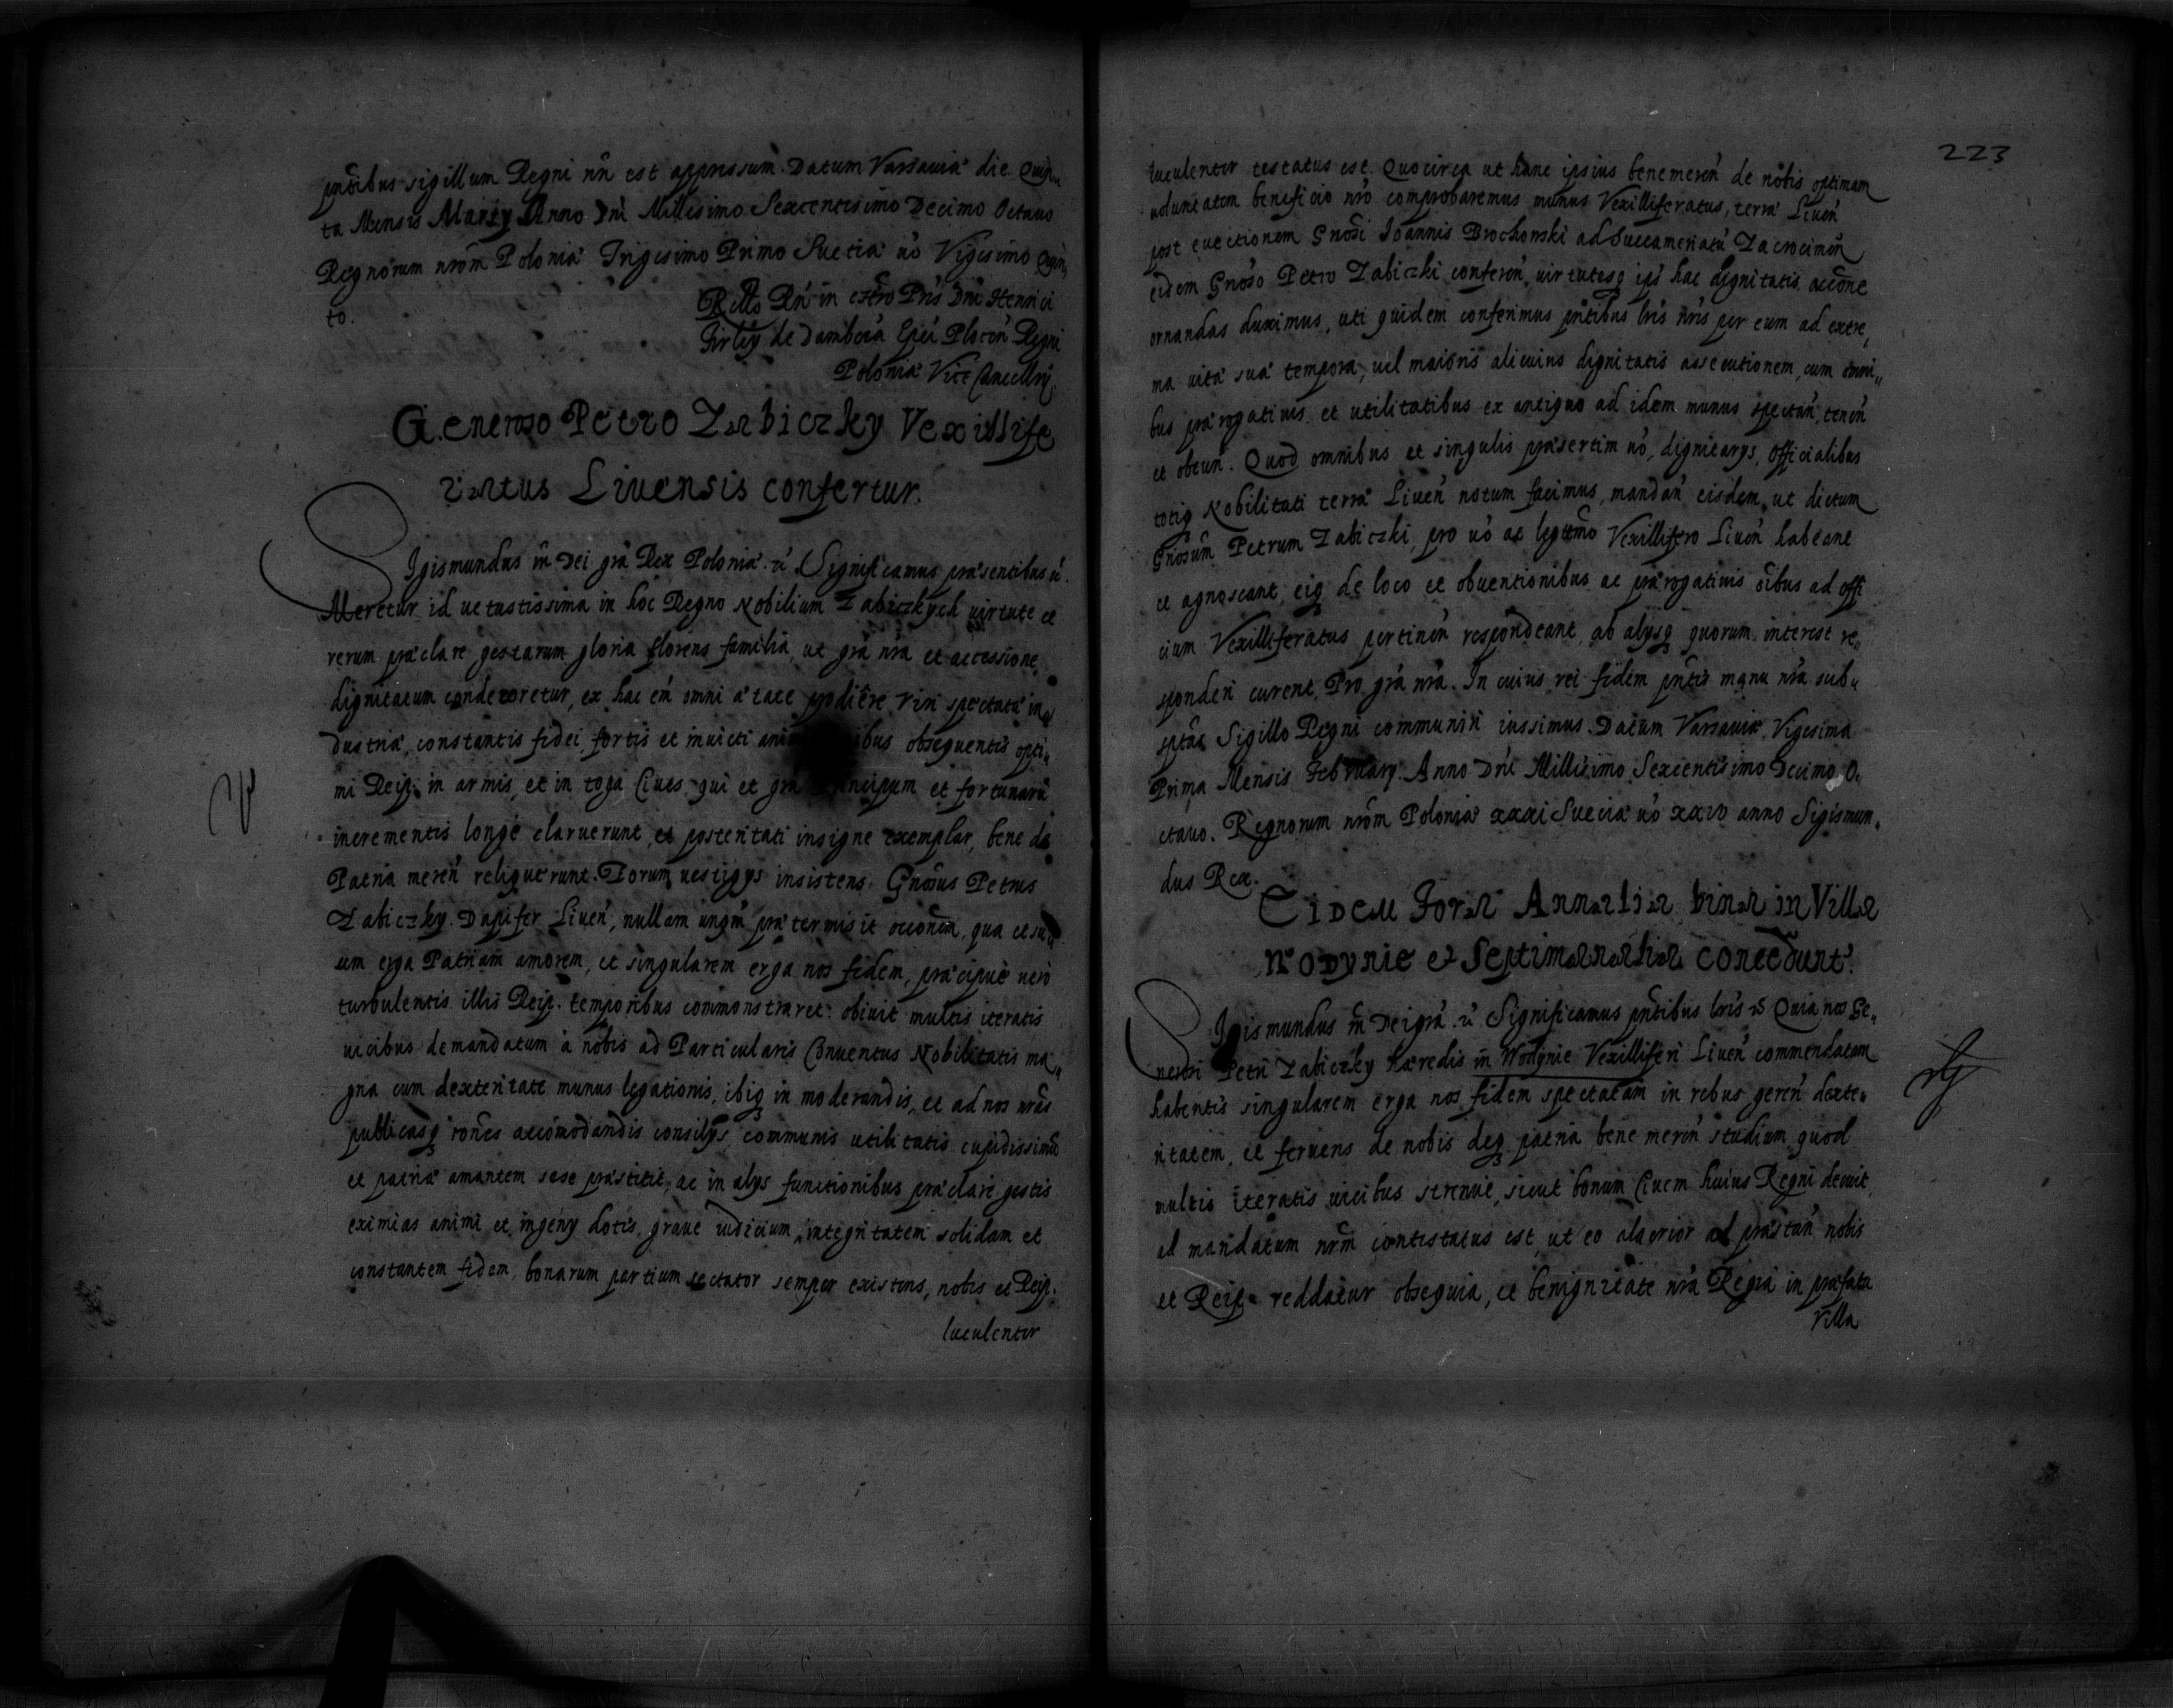 pntibus sigillum Regni nri est appressum. Datum Varsauiæ die Quin„
ta Mensis Martij Anno Dni Millesimo Sexcentesimo Decimo Octauo
Regnorum nrôm Poloniæ Trigesimo Primo Suetiæ uô Vigesimo Quin„
to.
Rllô Rñ in Chrô Pris Dni Henrici
Firlej de Dambrôa Epi Plocen Regni
Poloniæ Vice Cancellrij
Generoso Petro Zabiczky Vexillife
ratus Liuensis confertur.
Sigismundus iii Dei grâ Rex Poloniæ &c Significamus præsentibus &c.
Meretur id uetustissima in hoc Regno Nobilium Zabiczkych uirtute et
rerum præclare gestarum gloria florens familia, ut grâ nrâ et accessione
dignitatum condecoretur, ex hac eñ omni ætate prodiêre Viri spectatæ in„
dustriæ, constantis fidei, fortis et inuicti obsequentis opti„
mi Reip: in armis, et in toga Ciues, qui et grâ Principum et fortunarû
incrementis longè claruerunt, et posteritati insigne exemplar, bene de
Patria mereñ reliquerunt. Horum uestigijs insistens Gnôsus Petrus
Zabiczky Dapifer Liueñ, nullam unqm prætermisit occônem, qua et su„
um erga Patriam amorem, et singularem erga nos fidem, præcipuè uero
turbulentis illis Reip. temporibus commonstraret: obiuit multis iteratis
uicibus demandatum à nobis ad Particularis Conuentus Nobilitatis ma„
gna cum dexteritate munus legationis, ibiq in moderandis, et ad nos nrâs
publicasq rônes accômodandis consilijs, communis utilitatis cupidissimû
et patriæ amantem sese præstitit, ac in alijs functionibus præclarè gestis
eximias animi et ingenij dotis, graue iudicium, integritatem solidam et
constantem fidem, bonarum partium sectator semper existens, nobis et Reip.
luculenter
223
luculenter testatus est. Quocirca ut hanc ipsius benemereñ de nobis optimam
uoluntatem beneficio nrô comprobaremus munus Vexilliferatus, terræ Liueñ
post euectionem Gnôsi Ioannis Brochowski ad Succameratû Zacrocimeñ
eidem Gnôso Petro Zabiczki confereñ, uirtutesq ips hac dignitatis accône
ornandas duximus, uti quidem conferimus pntibus lris nris per eum ad extre„
ma uitæ suæ tempora, uel maioris alicuius dignitatis assecutionem, cum omni„
bus prærogatiuis et utilitatibus ex antiquo ad idem munus spectañ, teneñ
et obeuñ. Quod omnibus et singulis præsertim uô, dignitarijs, Officialibus
totiq Nobilitati terræ Liueñ notum facimus, mandañ eisdem, ut dictum
Gnôsum Petrum Zabiczki, pro uô ac legitmo Vexillifero Liueñ habeant
et agnoscant, eiq de loco et obuentionibus ac prærogatiuis oîbus ad offi
cium Vexilliferatus pertineñ respondeant, ab alijsq quorum interest re„
sponderi curent, Pro grâ nrâ. In cuius rei fidem pntis manu nrâ sub„
sptas Sigillo Regni communiri iussimus. Datum Varsauiæ Vigesima
Prima Mensis February. Anno Dni Millesimo Sexcentesimo Decimo O„
ctauo. Regnorum nrôm Poloniæ xxxi Sueciæ uô xxiv anno Sigismun„
dus Rex.
Eidem Fora Annalia bina in Villa
Wodynie et Septimanalia concedunt.
Sigismundus iii Dei grâ &c Significamus pntibus lris &c Quia nos Ge„
nerosi Petri Zabiczky hæredis in Wodynie Vexilliferi Liueñ commendatam
habentis singularem erga nos fidem spectatam in rebus gereñ dexte„
ritatem, et feruens de nobis deq patria bene mereñ studium quod
multis iteratis uicibus strenuè, sicut bonum Ciuem huius Regni decuit,
ad mandatum nrm contestatus est, ut eo alacrior ad præstañ nobis
et Reip: reddatur obsequia, et benignitate nrâ Regiâ in præfata
Villa